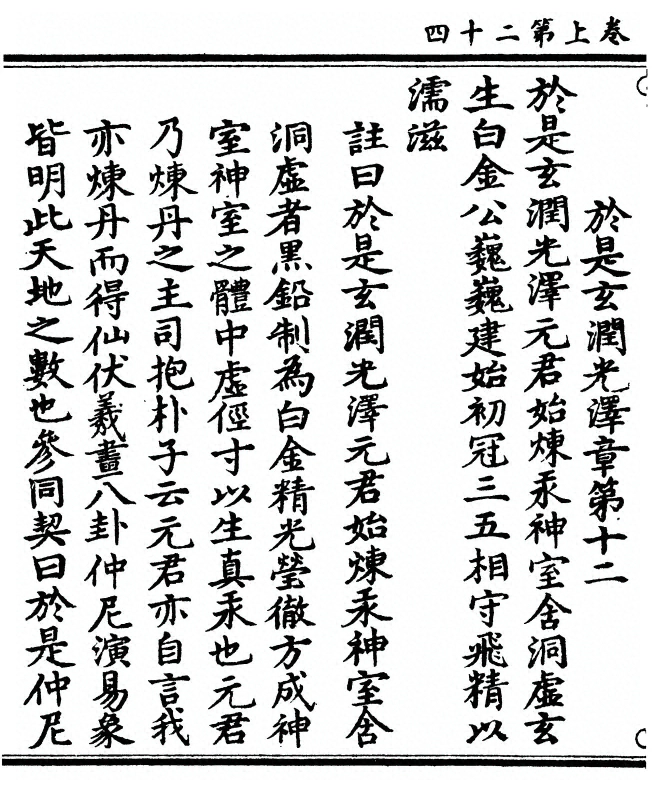 卷上第二十四
於是玄潤光澤章第十二
於是玄潤光澤元君始煉汞神室含洞虛玄
生白金公巍巍建始初冠三五相守飛精以
濡滋
註曰於是玄潤光澤元君始煉汞神室含
洞虛者黑鉛制為白金精光瑩徹方成神
室神室之體中虛徑寸以生真汞也元君
乃煉丹之主司抱朴子云元君亦自言我
亦煉丹而得仙伏羲畫八卦仲尼演易象
皆明此天地之數也參同契曰於是仲尼